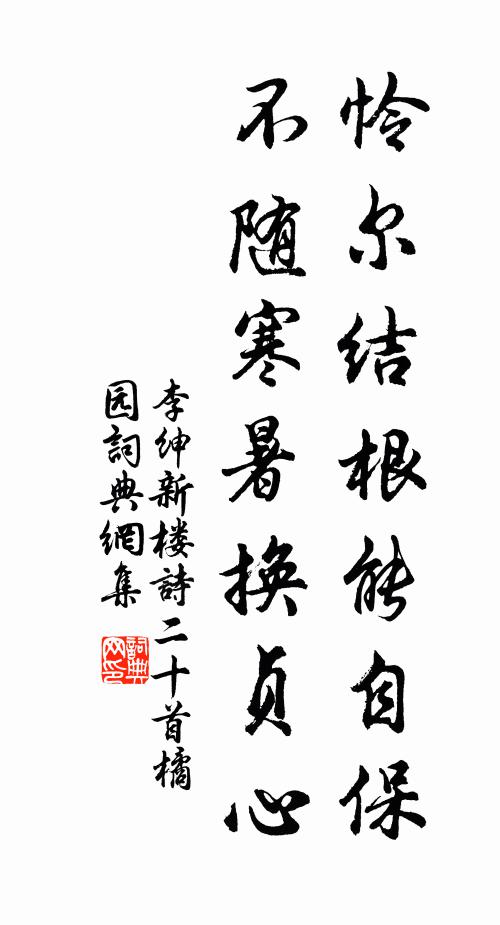 怜尔结根能自保
不随寒暑换贞心
李绅新楼詩二十首橘
园詞典網集
詞典网印